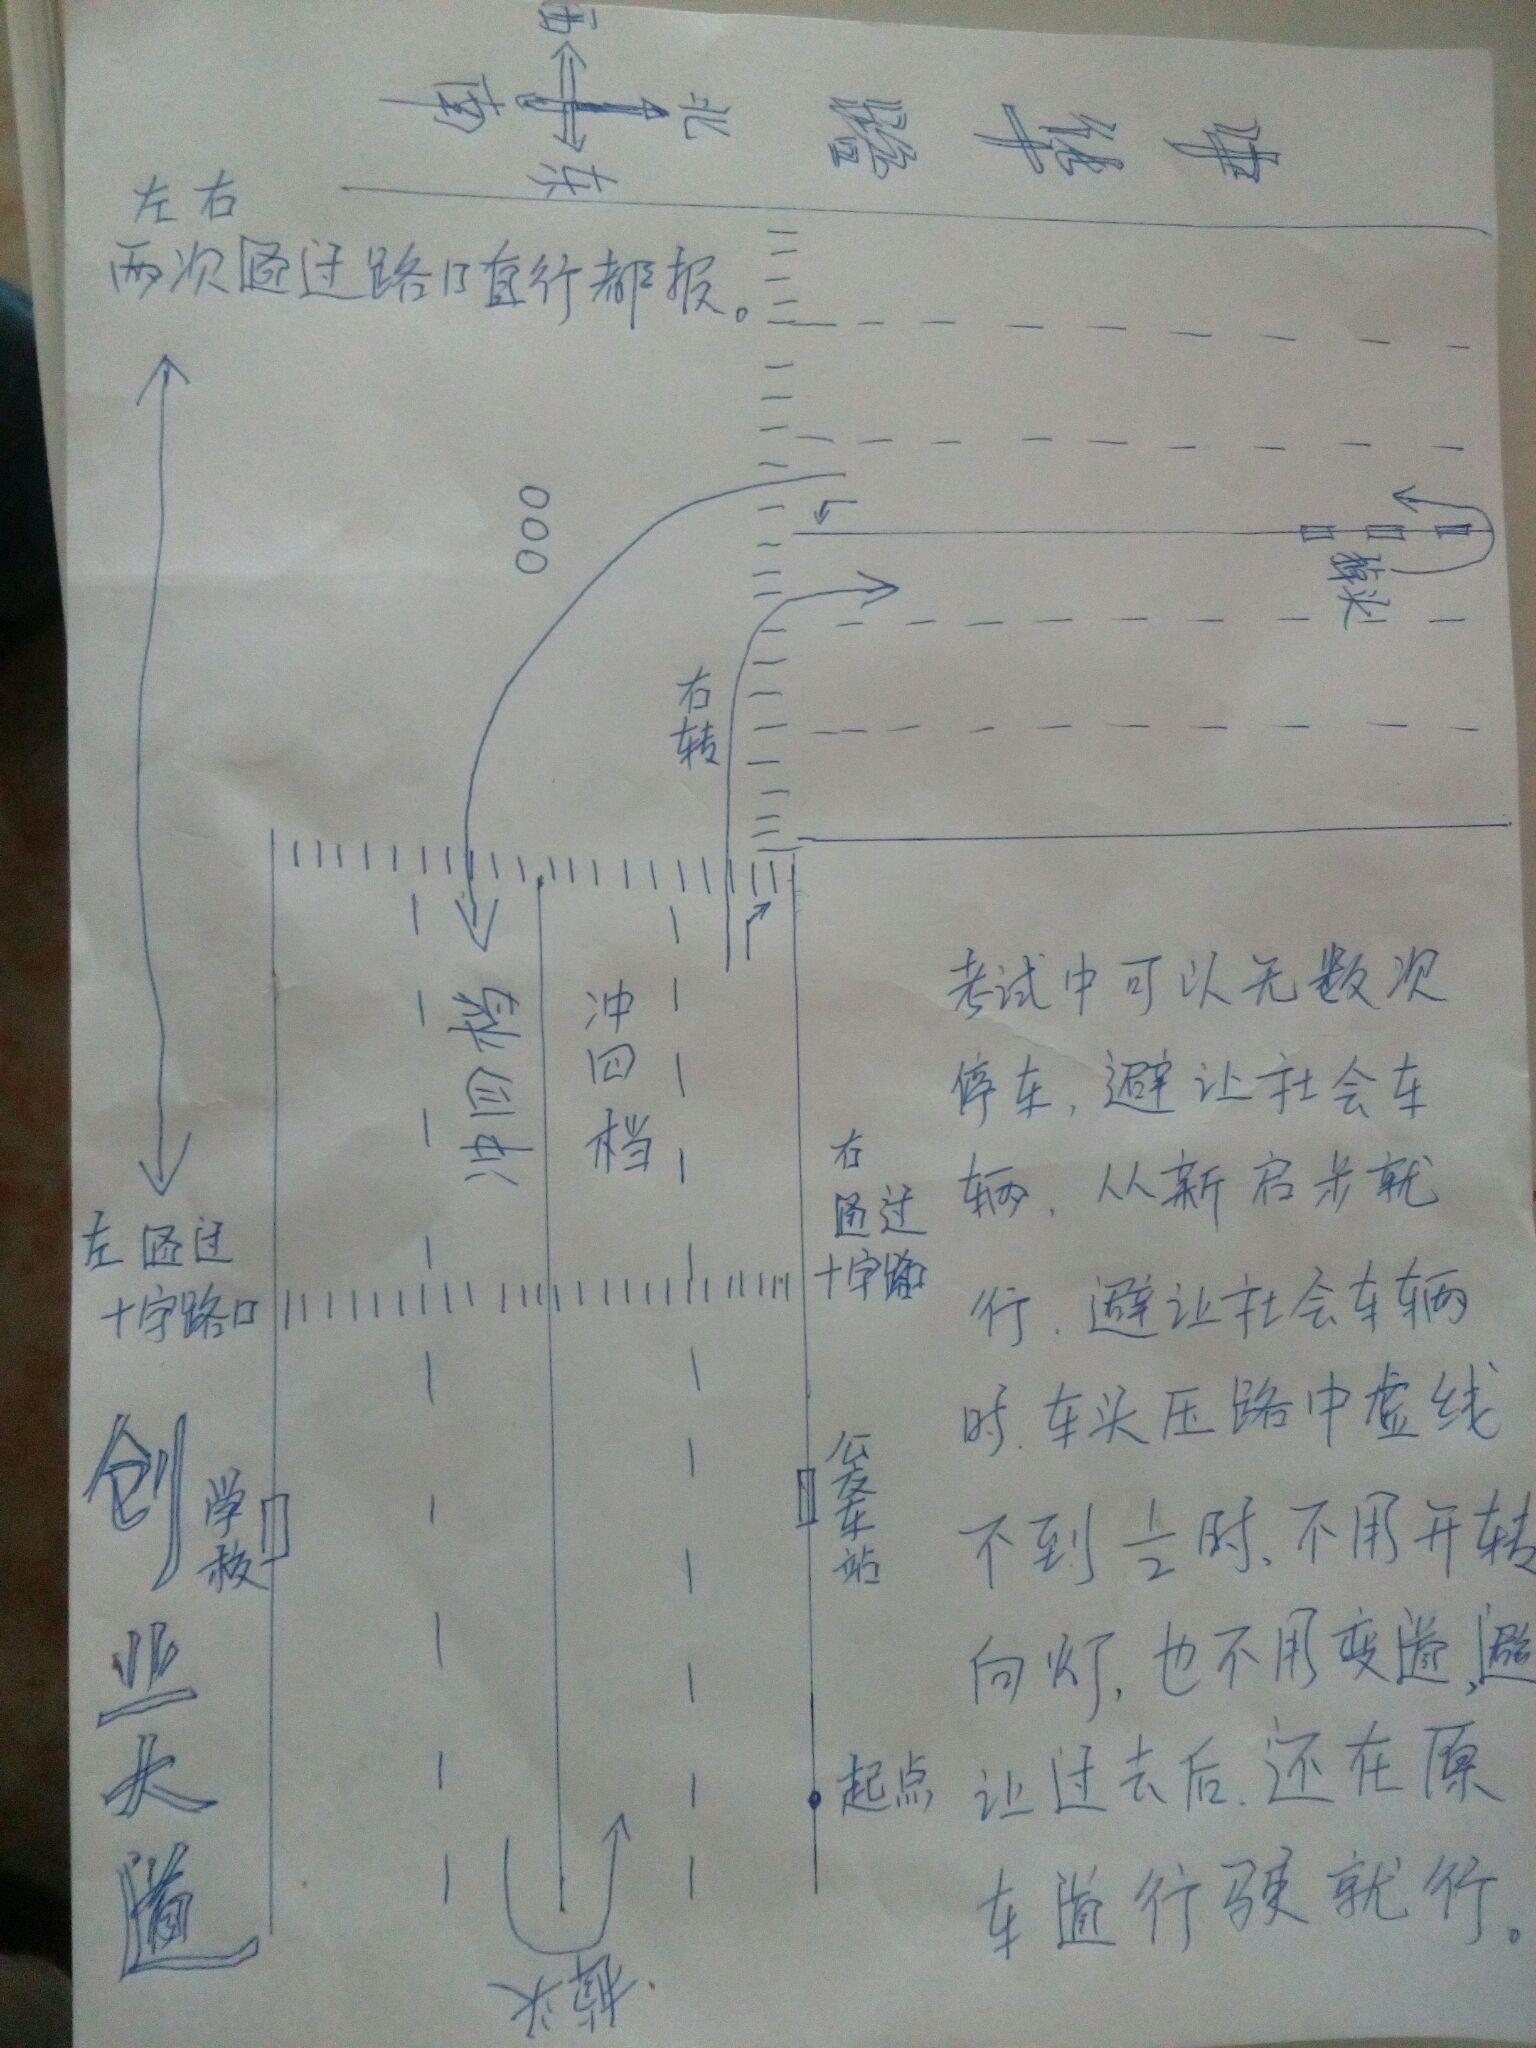 西
南
北
东
左右
两次通过路口直行都报。
000
掉头
右
转
冲
四
档
冲四档
考试中可以无数次
停车,避让社会车
辆.从新启步就
行.避让社会车辆
时.车头压路中虚线
不到1/2时、不用开转
向灯,也不用变道,避
让过去后.还在原
车道行驶就行。
右
通过
十字路口
左通过
十字路口
创业大道
学校
公交车站
起点
掉头